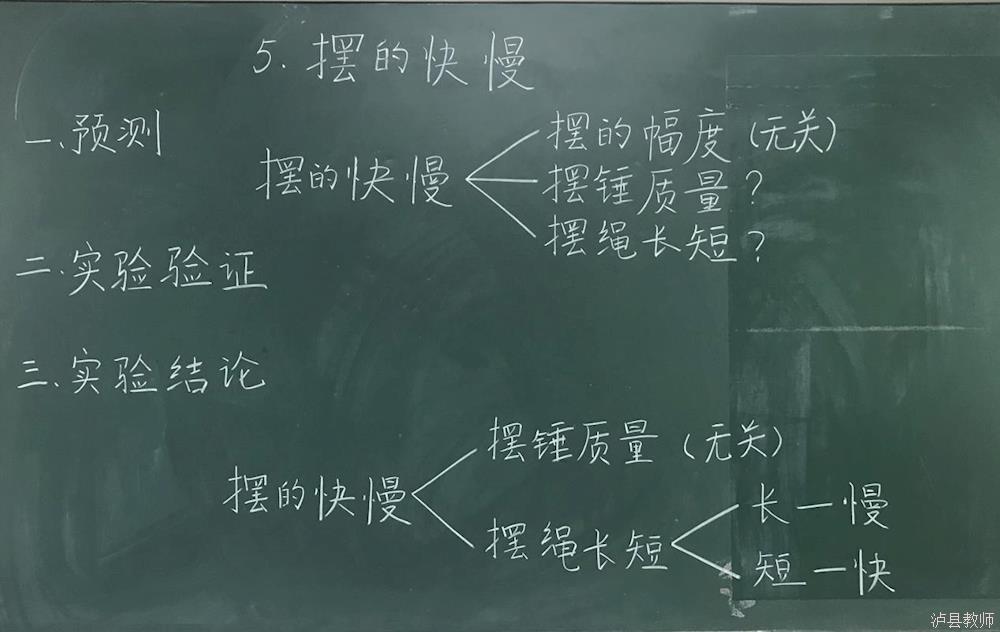 5. 摆的快慢
一、预测
摆的快慢
摆的幅度(无关)
摆锤质量?
摆绳长短?
二、实验验证
三、实验结论
摆的快慢
摆锤质量(无关)
摆绳长短
长—慢
短—快
泸县教师